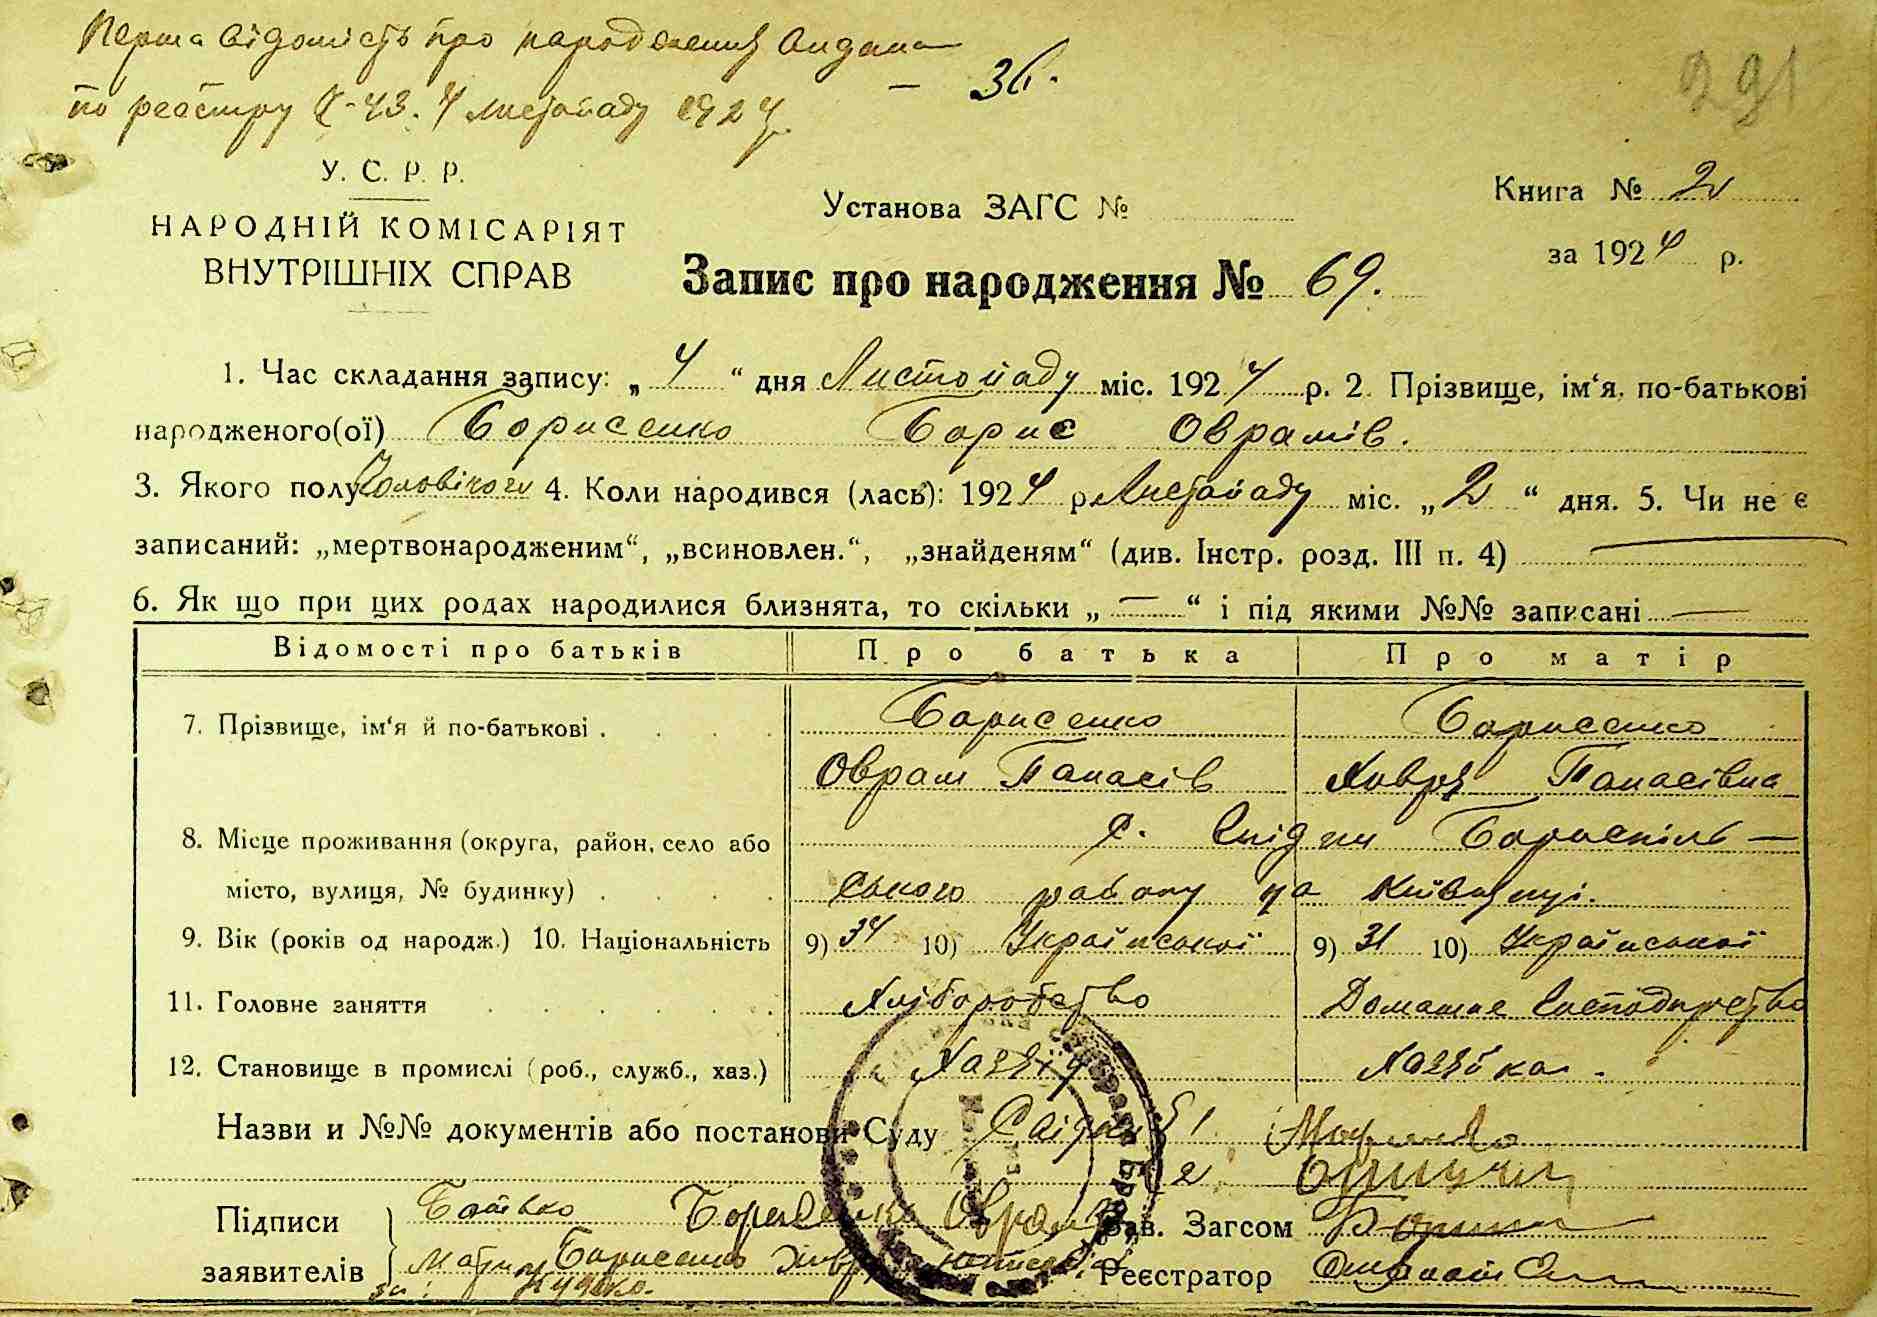 Перша відомість про народження видана — 36.
по реєстру 4 Листопаду 1924
291
У. С. Р. Р.
НАРОДНІЙ КОМІСАРІЯТ
ВНУТРІШНІХ СПРАВ
Установа ЗАГС №
Книга № 2
за 1924 р.
Запис про народження № 69.
1. Час складання запису: „4“ дня Листопаду міс. 1924 р. 2. Прізвище, ім‘я, по-батькові
народженого(ої) Борисенко Борис Оврамів.
3. Якого полу Чоловічого 4. Коли народився (лась): 1924 р. Листопаду міс. „2“ дня. 5. Чи не є
записаний: „мертвонародженим“, „всиновлен.“, „знайденям“ (див. Інстр. розд. III п. 4) —
6. Як що при цих родах народилися близнята, то скільки „—“ і під якими №№ записані —
Відомості про батьків Про батька Про матір
7. Прізвище, ім‘я й по-батькові . . . . Борисенко Борисенко
Оврам Панасів Ховря Панасівна
8. Місце проживання (округа, район, село або с. Бориспіль—
місто, вулиця, № будинку) . . . . ського району на Київщині.
9. Вік (років од народж.) 10. Національність 9) 34 10) Української 9) 31 10) Української
11. Головне заняття . . . . . . Хліборобство Домашнє Господарство
12. Становище в промислі (роб., служб., хаз.) Хазяїн Хазяйка.
Назви и №№ документів або постанови Суду Свідки 1
2
Підписи Батько Борисенко Оврам Зав. Загсом
заявителів Мати Борисенко Реєстратор